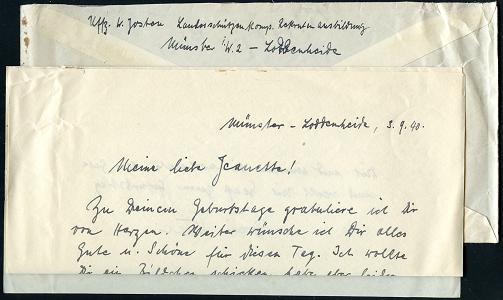 Uffz. W. Josten Landesschützen Komp. Rekrutenausbildung
Münster i/W. 2 – Loddenheide
Münster – Loddenheide, 3.9.40.
Meine liebe Jeanette!
Zu Deinem Geburtstage gratuliere ich Dir
von Herzen. Weiter wünsche ich Dir alles
Gute u. Schöne für diesen Tag. Ich wollte
Dir ein Bildchen schicken, habe aber leider